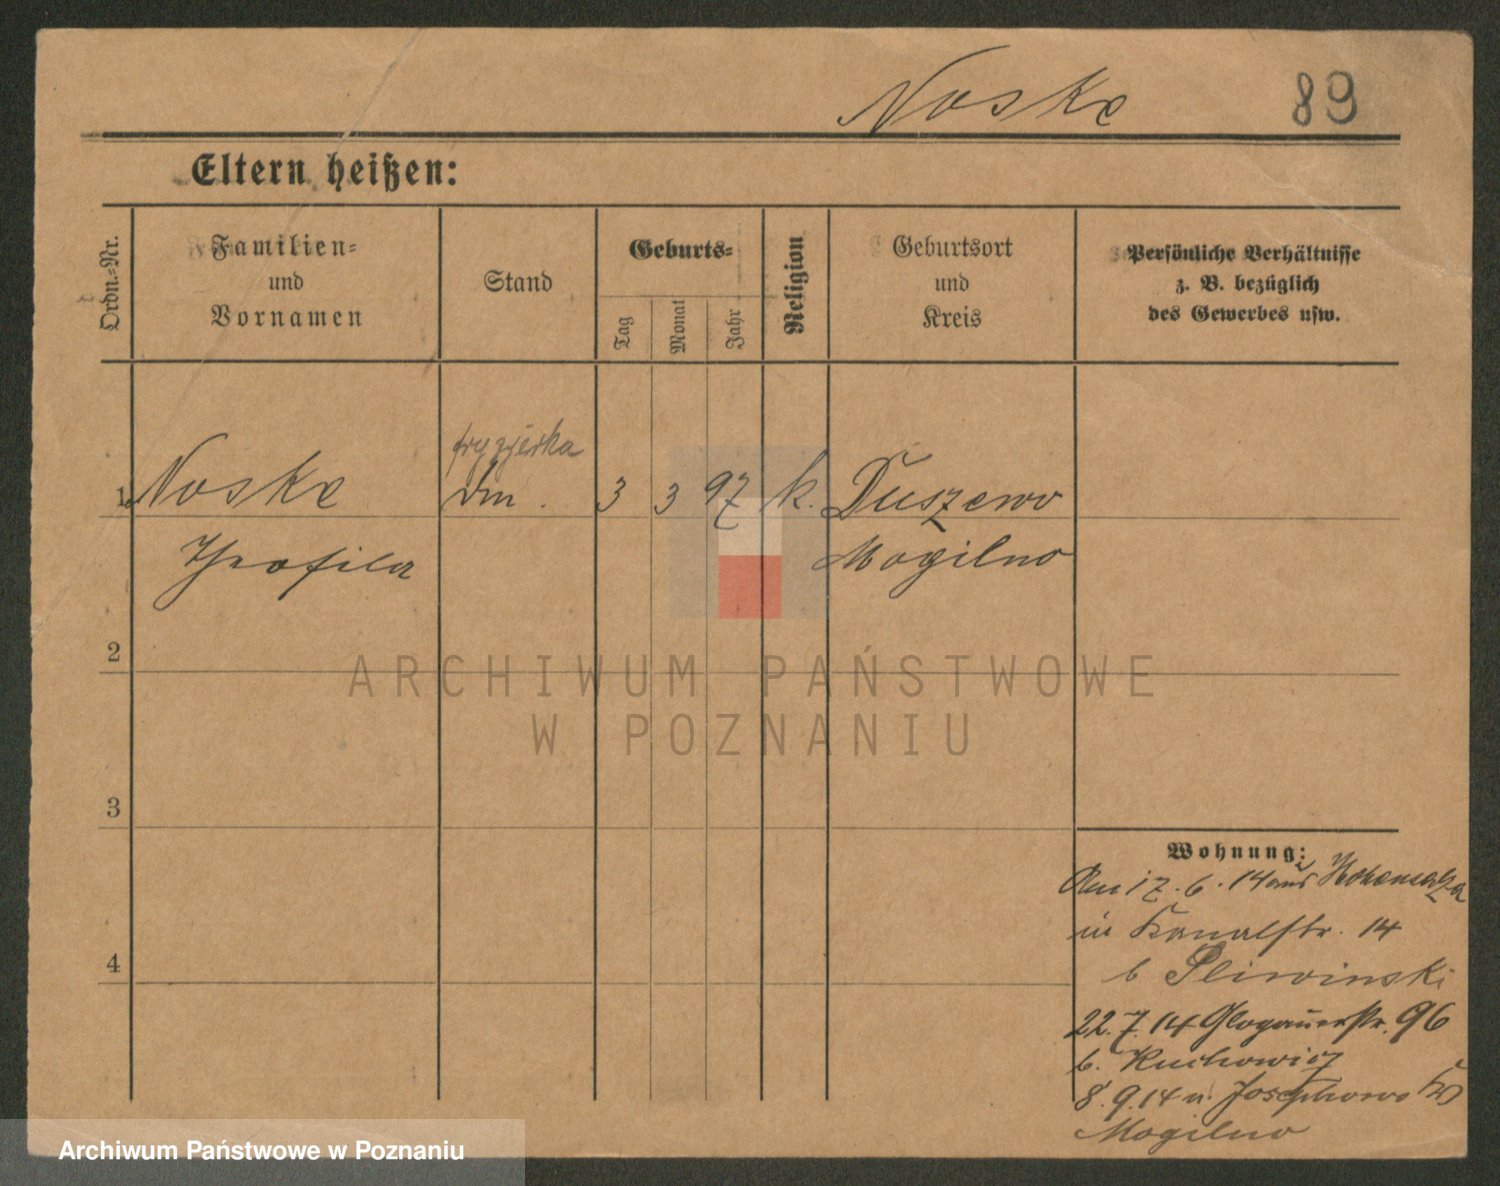 Noske 89
Eltern heißen:
Ordn.-Nr.
Familien-
und
Vornamen
Stand
Geburts-
Tag
Monat
Jahr
Religion
Geburtsort
und
Kreis
Persönliche Verhältnisse
z. B. bezüglich
des Gewerbes usw.
fryzjerka
1 Noske dm. 3 3 97 k. Duszewo
Theofila Mogilno
2
ARCHIWUM PAŃSTWOWE
W POZNANIU
3
Wohnung:
Am 17.6.14 aus Hohensalza
in Kanalstr. 14
b Sliwinski
22.7.14 Glogauerstr. 96
b. Kuchowicz
8.9.14 n. Josephowo Kr
Mogilno
4
Archiwum Państwowe w Poznaniu